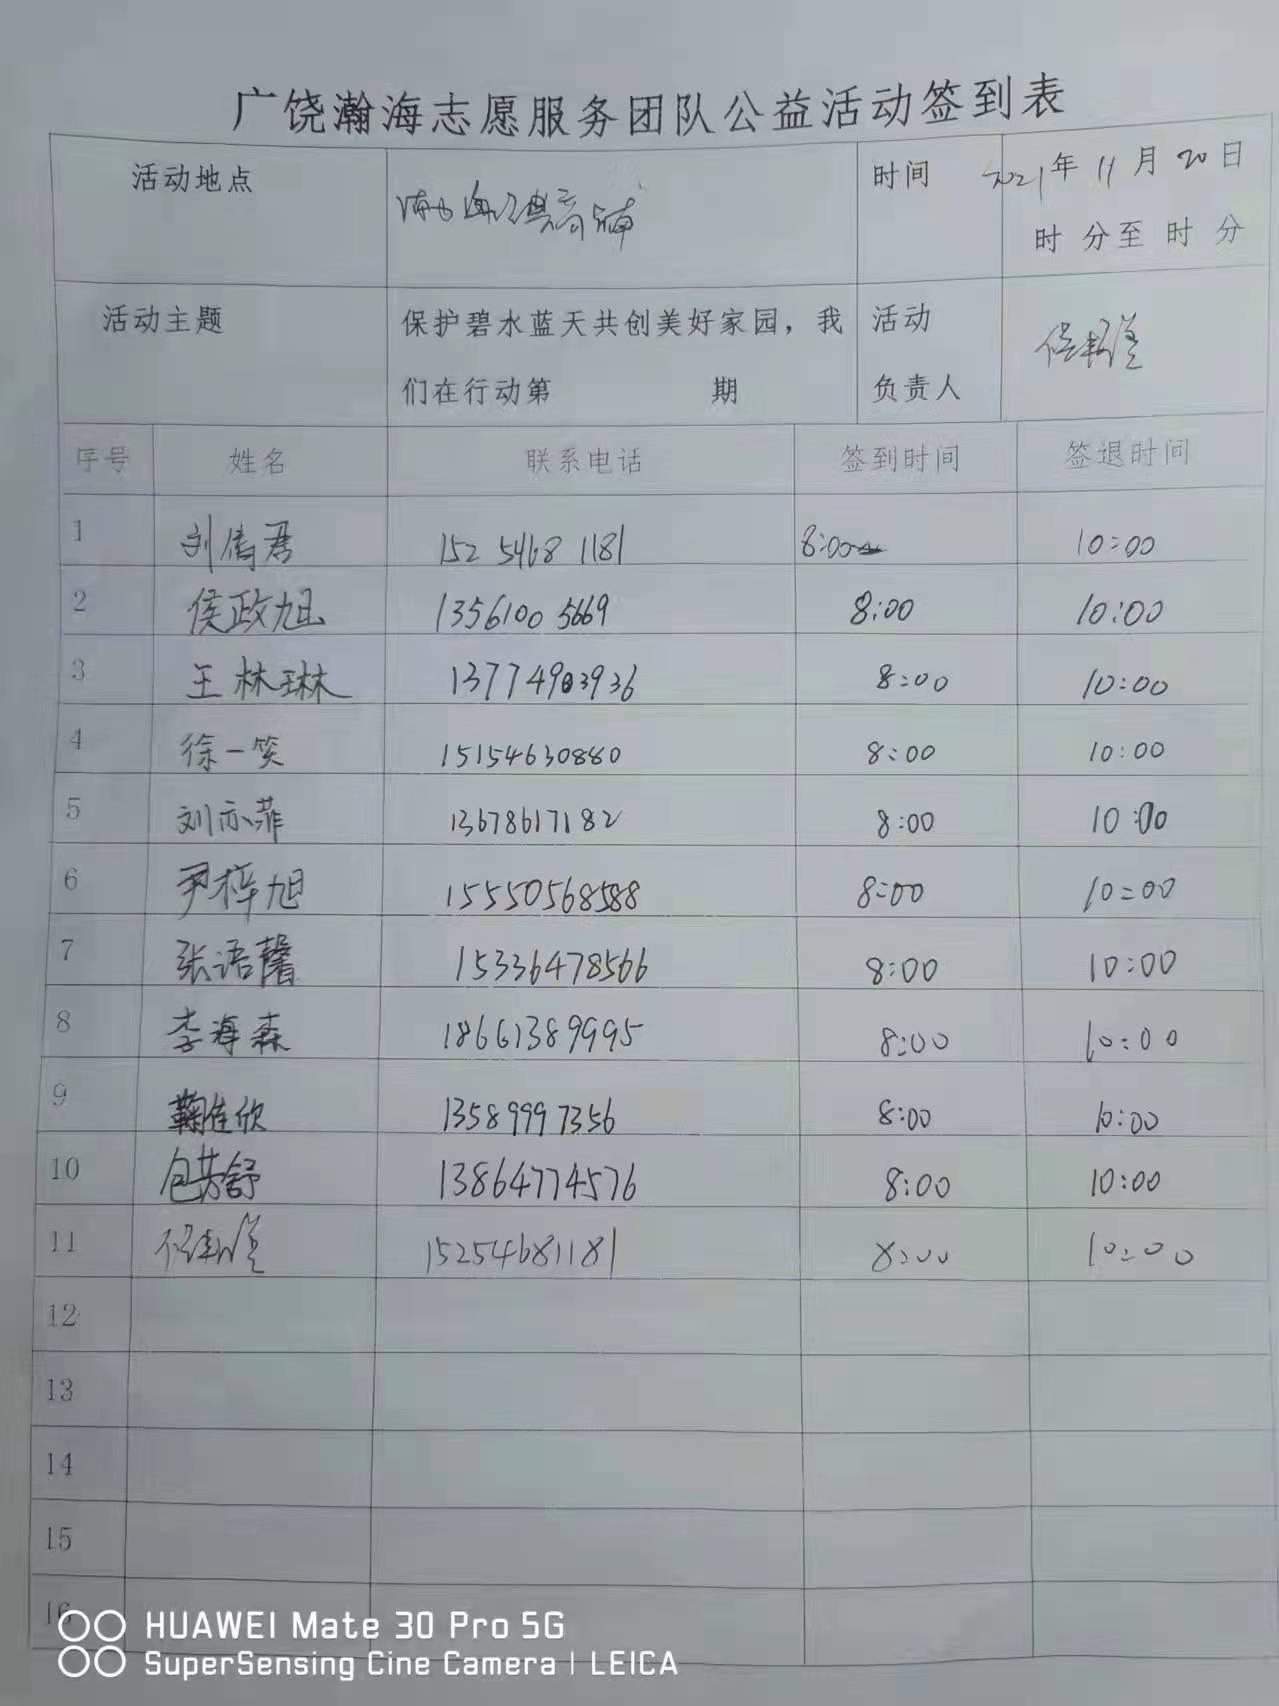 广饶瀚海志愿服务团队公益活动签到表
活动地点
时间 2021年11月20日
时 分至 时 分
活动主题
保护碧水蓝天共创美好家园，我
们在行动第 期
活动
负责人
序号 姓名 联系电话 签到时间 签退时间
1 刘倩君 152 5468 1181 8:00 10:00
2 侯政旭 1356100 5669 8:00 10:00
3 王林琳 13774903936 8:00 10:00
4 徐一笑 15154630880 8:00 10:00
5 刘亦菲 13678617182 8:00 10:00
6 尹梓旭 15550568588 8:00 10:00
7 张语馨 15336478566 8:00 10:00
8 李海森 18661389995 8:00 10:00
9 鞠佳欣 13589997356 8:00 10:00
10 包芸舒 13864774576 8:00 10:00
11 15254681181 8:00 10:00
12
13
14
15
16
HUAWEI Mate 30 Pro 5G
SuperSensing Cine Camera | LEICA